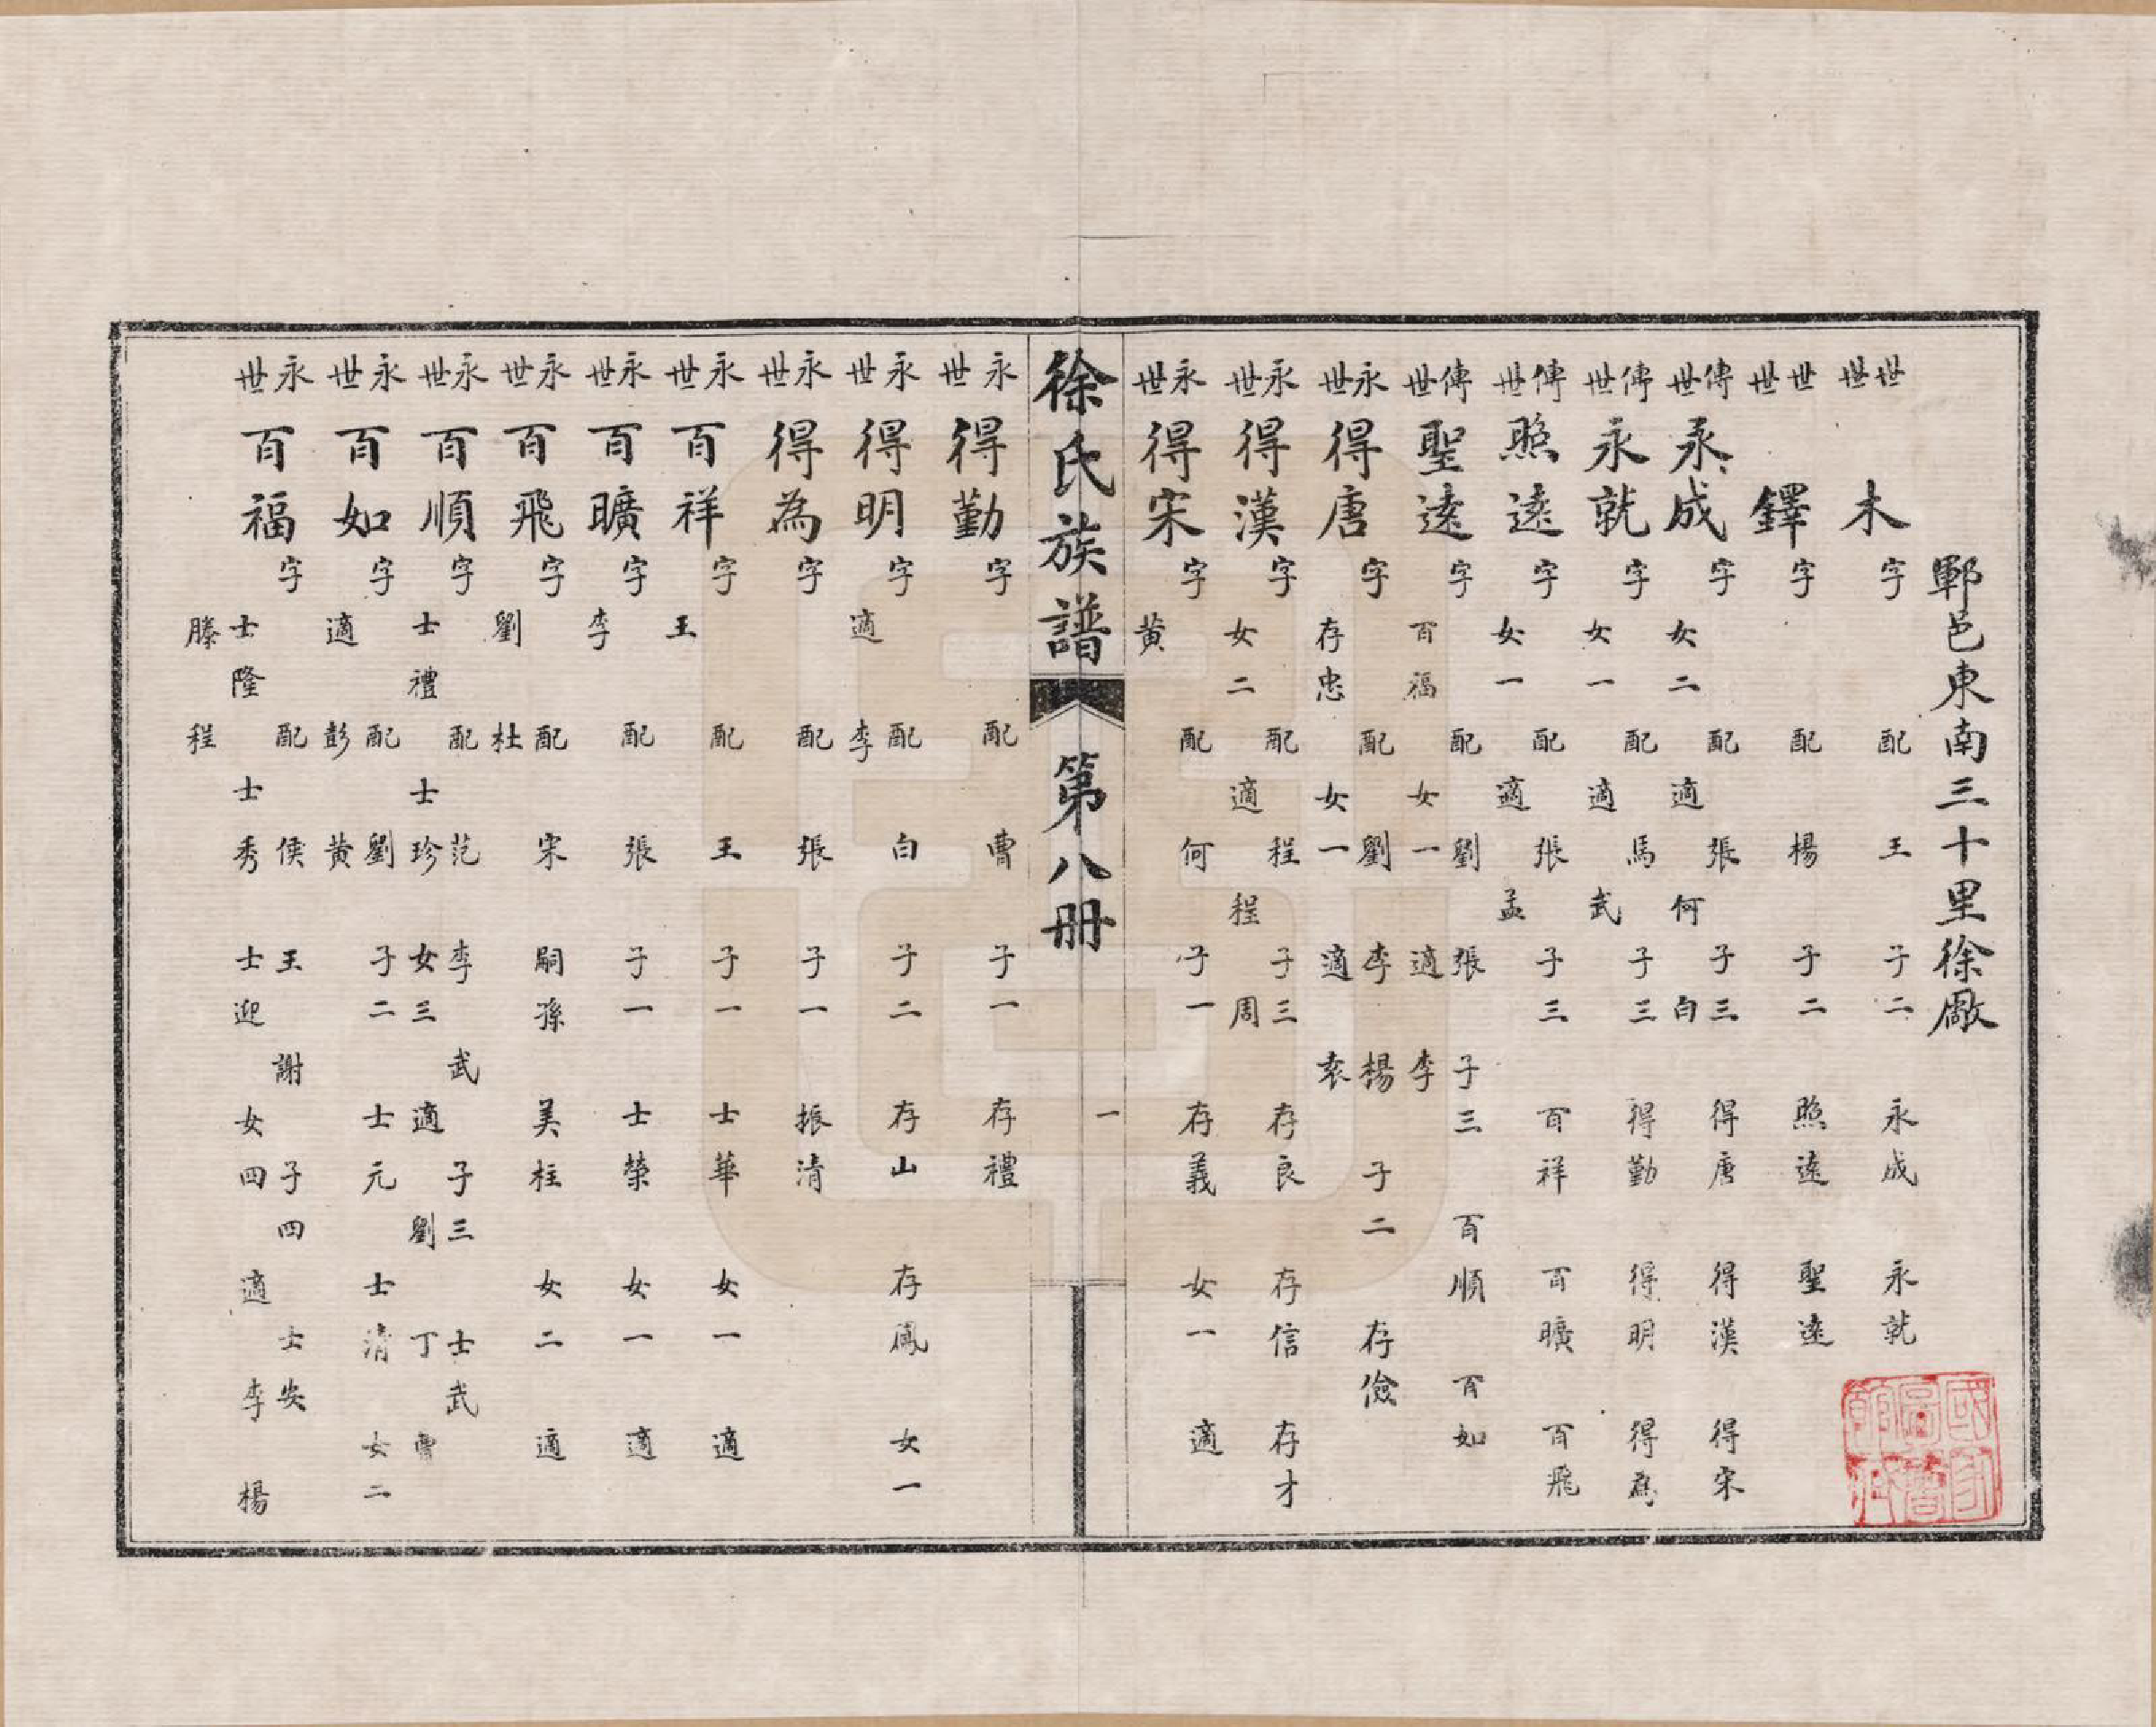 鄆邑東南三十里徐廠
世世 木 字 配 王 子二 永成 永就
世世 鐸 字 配 楊 子二 照遠 聖遠
傳世 永成 字 配 張 子三 得唐 得漢 得宋
女二 適 何 白
傳世 永就 字 配 馬 子三 得勤 得明 得為
女一 適 武
傳世 照遠 字 配 張 子三 百祥 百曠 百飛
女一 適 孟
傳世 聖遠 字 配 劉 張 子三 百順 百如
百福 女一 適 李
永世 得唐 字 配 劉 李 楊 子二 存儉
存忠 女一 適 袁
永世 得漢 字 配 程 子三 存良 存信 存才
女二 適 程 周
永世 得宋 字 配 何 子一 存義 女一 適
黄
徐氏族譜 第八冊 一
永世 得勤 字 配 曹 子一 存禮
永世 得明 字 配 白 子二 存山 存鳳 女一
適 李
永世 得為 字 配 張 子一 振清
永世 百祥 字 配 王 子一 士華 女一 適
王
永世 百曠 字 配 張 子一 士榮 女一 適
李
永世 百飛 字 配 宋 嗣孫 美柱 女二 適
劉 杜
永世 百順 字 配 范 李 武 子三 士武
士禮 士珍 女三 適 劉 丁 曹
永世 百如 字 配 劉 子二 士元 士清 女二
適 彭 黄
永世 百福 字 配 侯 王 謝 子四 士安
士隆 士秀 士迎 女四 適 李 楊
滕 程
國家圖書館藏